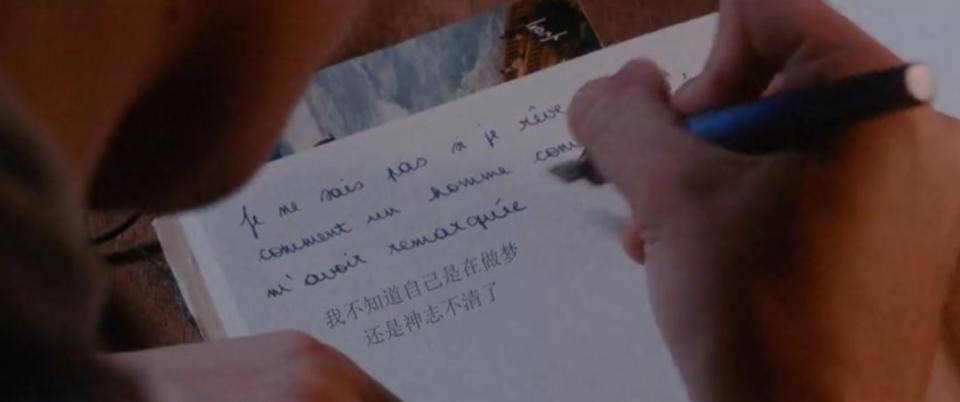 Je ne sais pas si je rêve
comment un homme com
m'avoir remarquée
我不知道自己是在做梦
还是神志不清了